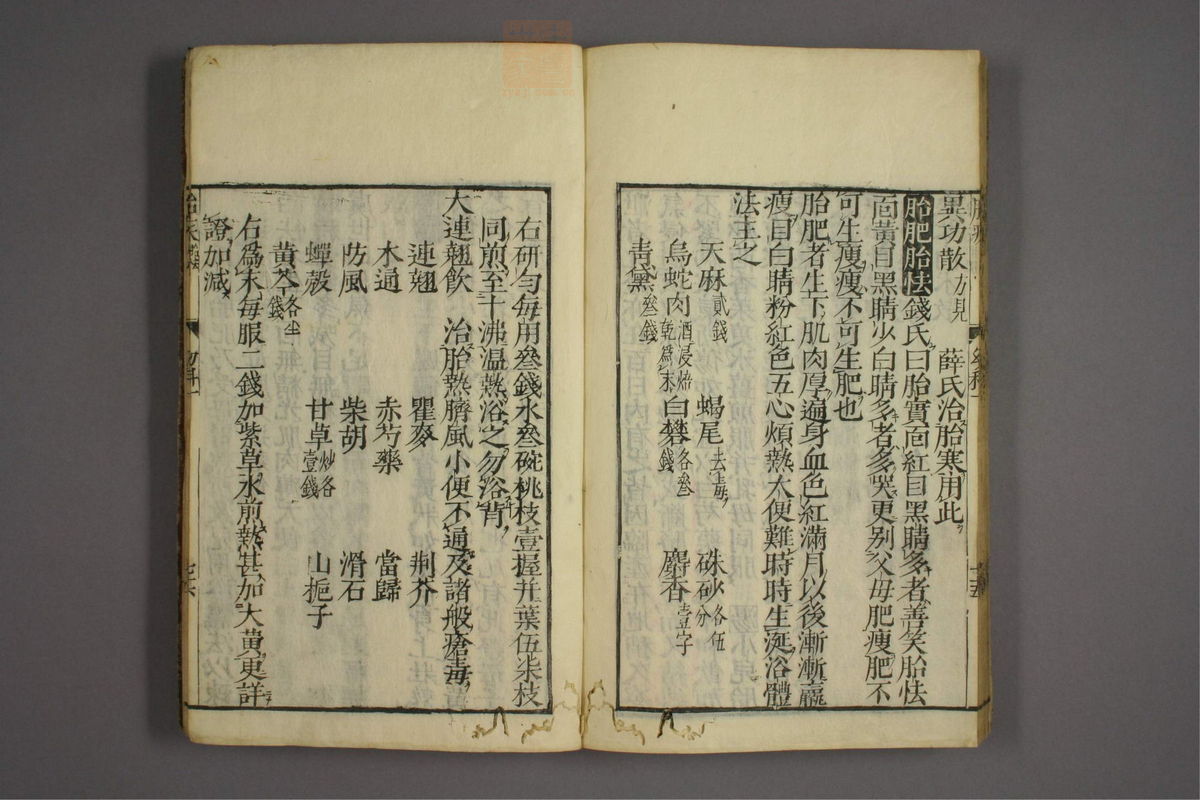 異功散方見 薛氏治胎寒用此
胎肥胎怯錢氏曰胎實面紅目黑睛多者善笑胎怯
面黃目黑睛少白睛多者多哭更別父母肥瘦肥不
可生瘦瘦不可生肥也
胎肥者生下肌肉厚遍身血色紅滿月以後漸漸羸
瘦目白睛粉紅色五心煩熱大便難時時生涎浴體
法主之
天麻貳錢 蝎尾去毒 硃砂各伍分
烏蛇肉酒浸焙乾爲末 白礬各叁錢 麝香壹字
青黛叁錢
右研勻每用叁錢水叁碗桃枝壹握并葉伍柒枝
同煎至十沸溫熱浴之勿浴背
大連翹飲 治胎熱臍風小便不通及諸般瘡毒
連翹 瞿麥 荆芥
木通 赤芍藥 當歸
防風 柴胡 滑石
蟬殼 甘草炒各壹錢 山梔子
黃芩各
右爲末每服二錢加紫草水煎熱甚加大黃更詳
證加減